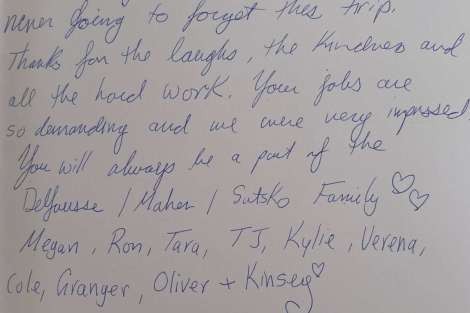 never going to forget this trip.
Thanks for the laughs, the kindness and
all the hard work. Your jobs are
so demanding and we were very impressed.
You will always be a part of the
Delfausse / Maher / Sutsko Family ♡♡
Megan, Ron, Tara, TJ, Kylie, Verena,
Cole, Granger, Oliver + Kinsey ♡